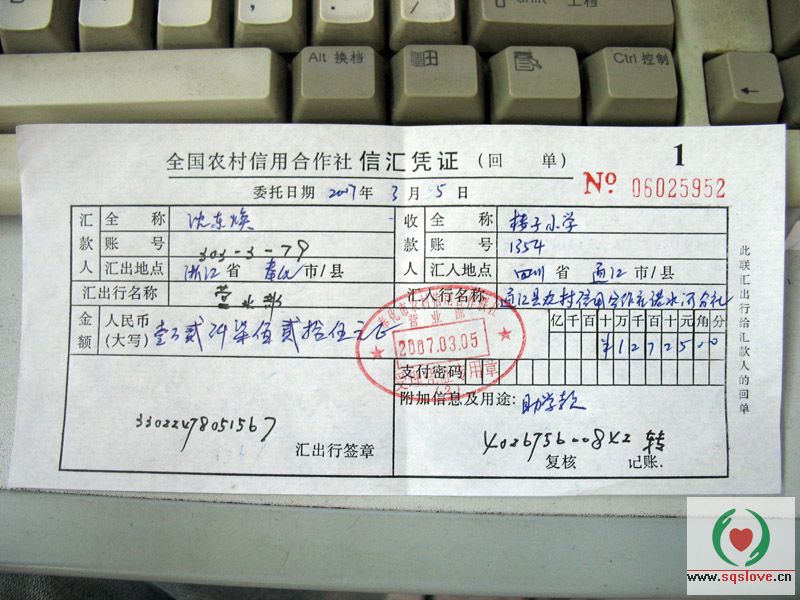 Shift 上档
Alt 换档
Ctrl 控制
全国农村信用合作社 信汇凭证 (回 单) 1
委托日期 2007年 3月 5日
№ 06025952
汇款人 全称 沈东焕
账号 303-3-79
汇出地点 浙江省 奉化市/县
汇出行名称 营业部
收款人 全称
小学
账号 1354
汇入地点 四川省 通江市/县
汇入行名称 通江县农村信用合作社
金额 人民币(大写) 壹万贰仟柒佰贰拾伍元正
亿千百十万千百十元角分
¥1272500
支付密码
附加信息及用途: 助学款
汇出行签章
4026756-00842 转
复核 记账.
此联汇出行给汇款人的回单
营业部
2007.03.05
www.sqslove.cn